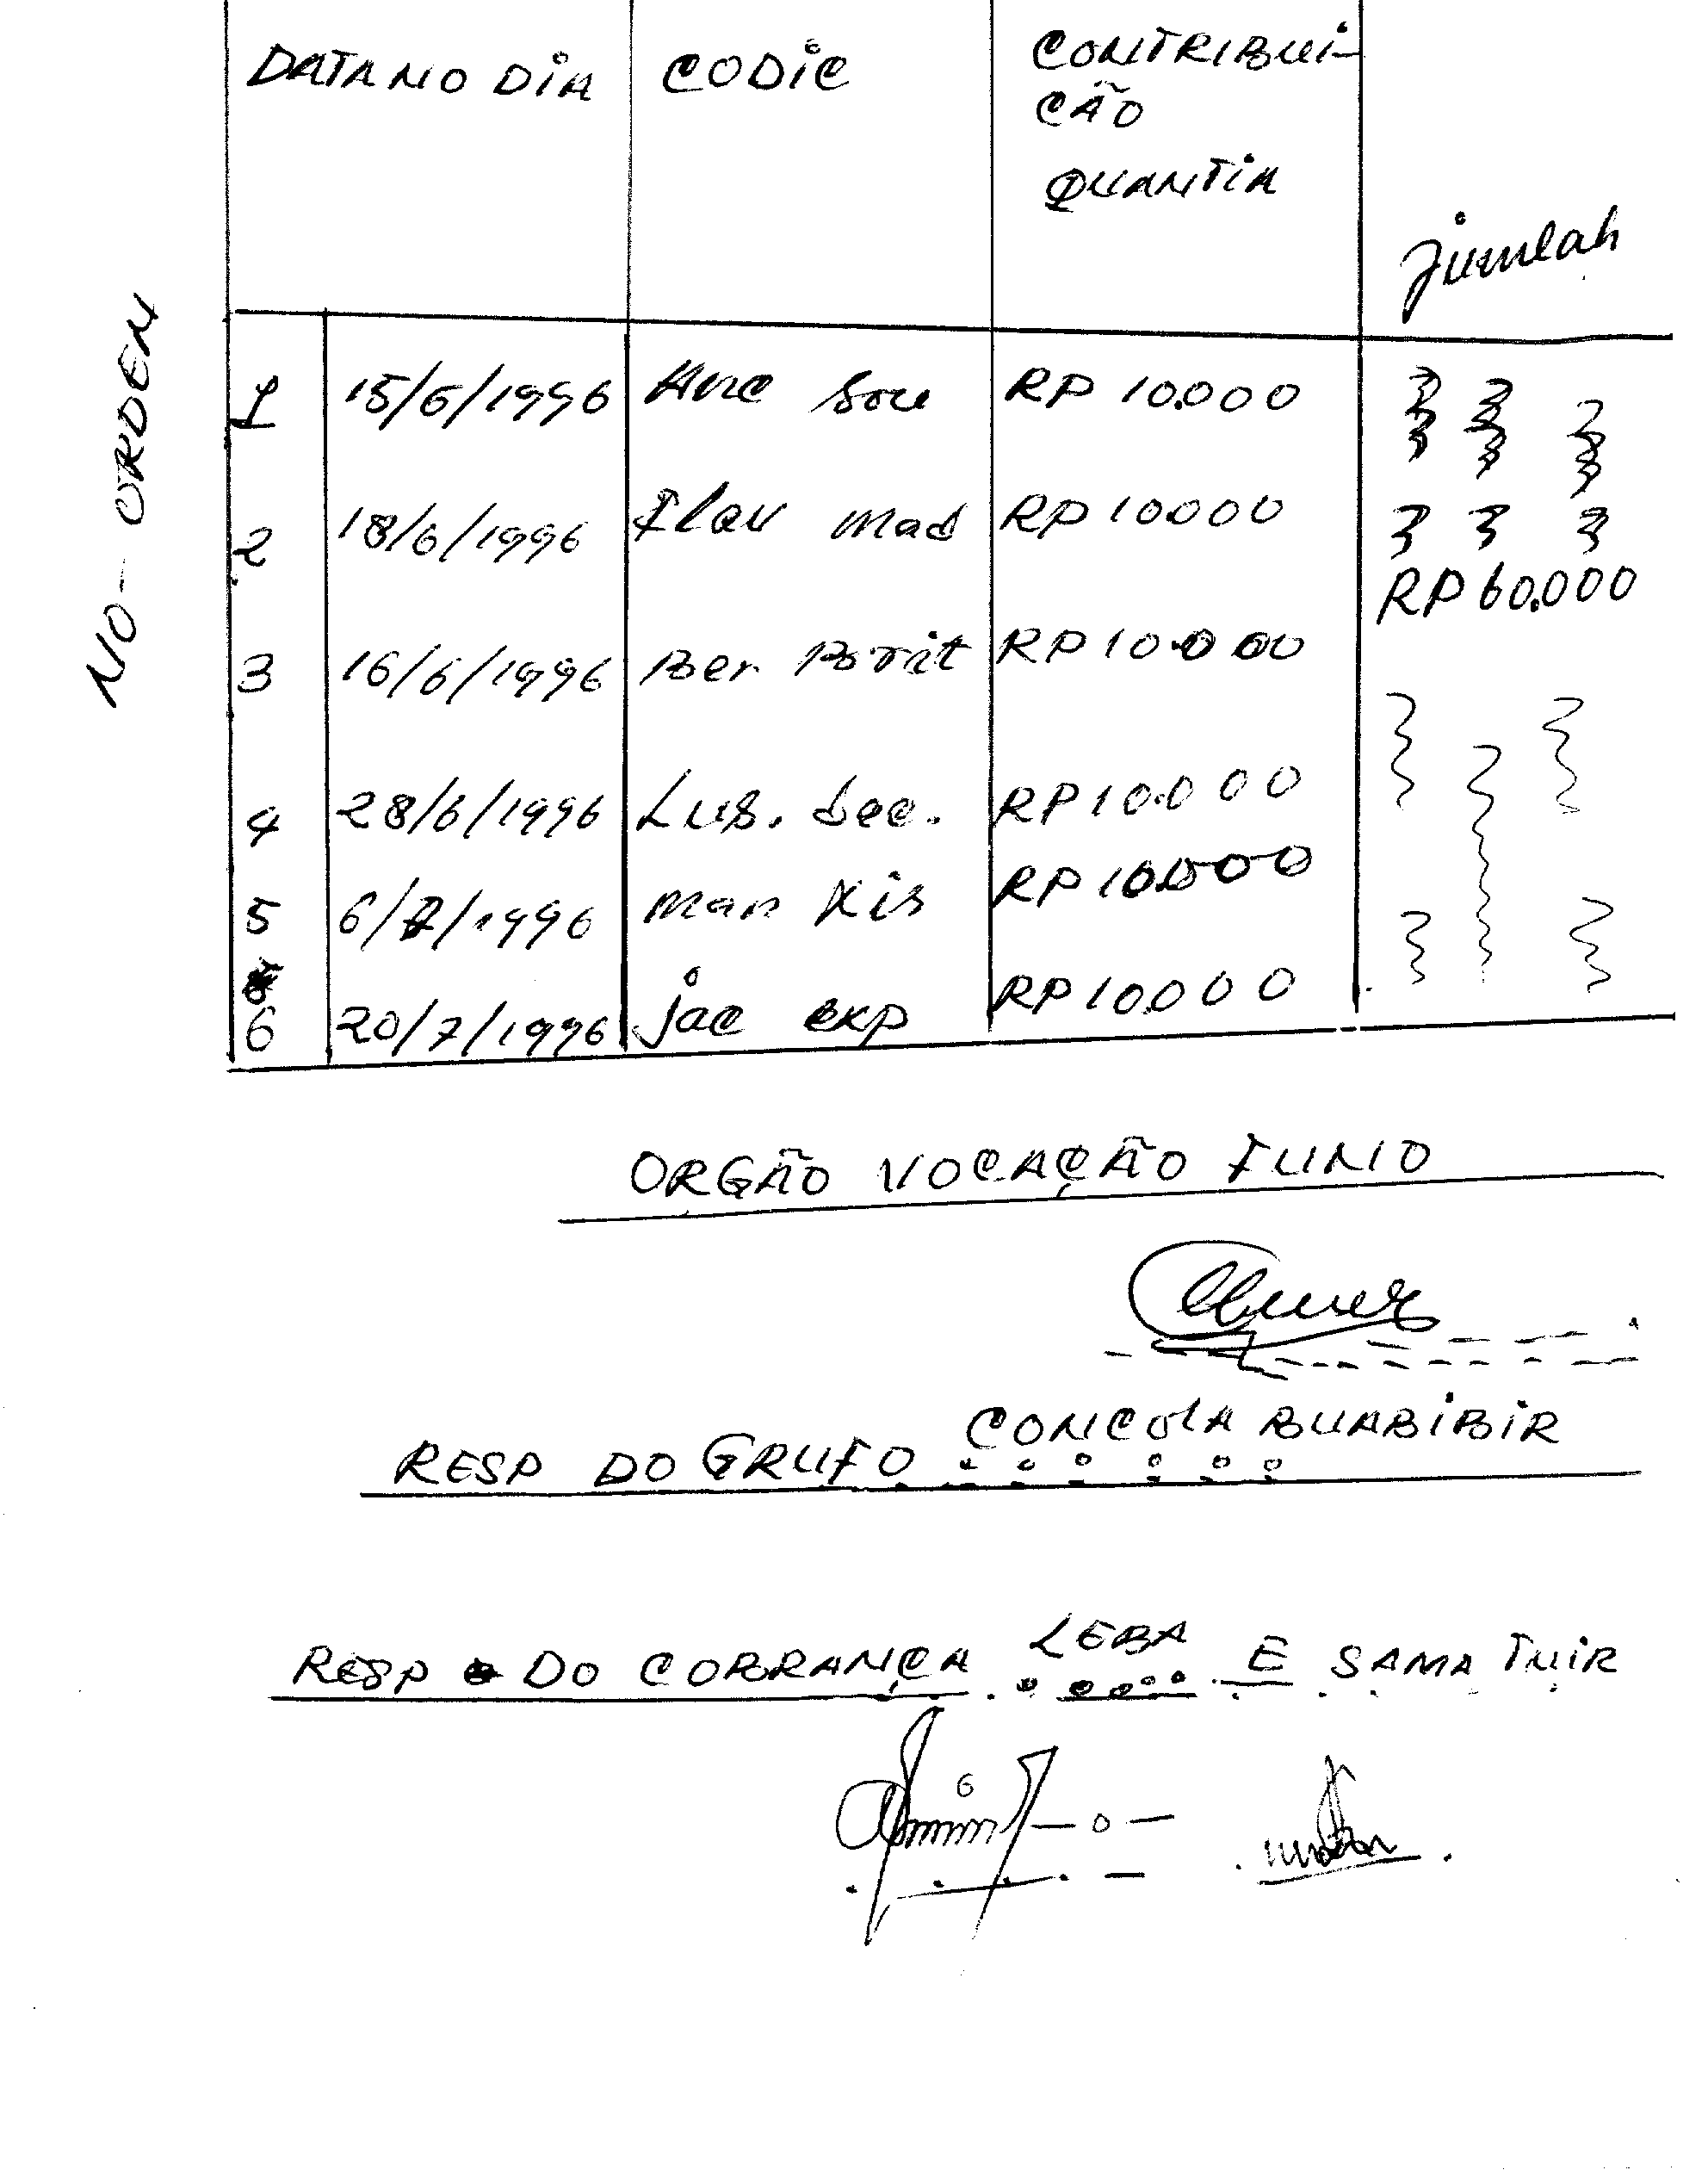 DATA NO DIA CODIC CONTRIBUI-
CÃO
QUANTIA
jumlah
NO - ORDEM
1 15/6/1996 sou RP 10.000
2 18/6/1996 Flav mad RP 10000
RP 60.000
3 16/6/1996 Ber Brit RP 10.000
4 28/6/1996 Lus. dec. RP 10.000
5 6/7/1996 man Kis RP 10.000
6 20/7/1996 jac exp RP 10.000
ORGÃO VOCAÇÃO
CONCOLA BUABIBIR
RESP DO GRUFO
RESP DO COBRANÇA LEBA E SAMATUIR